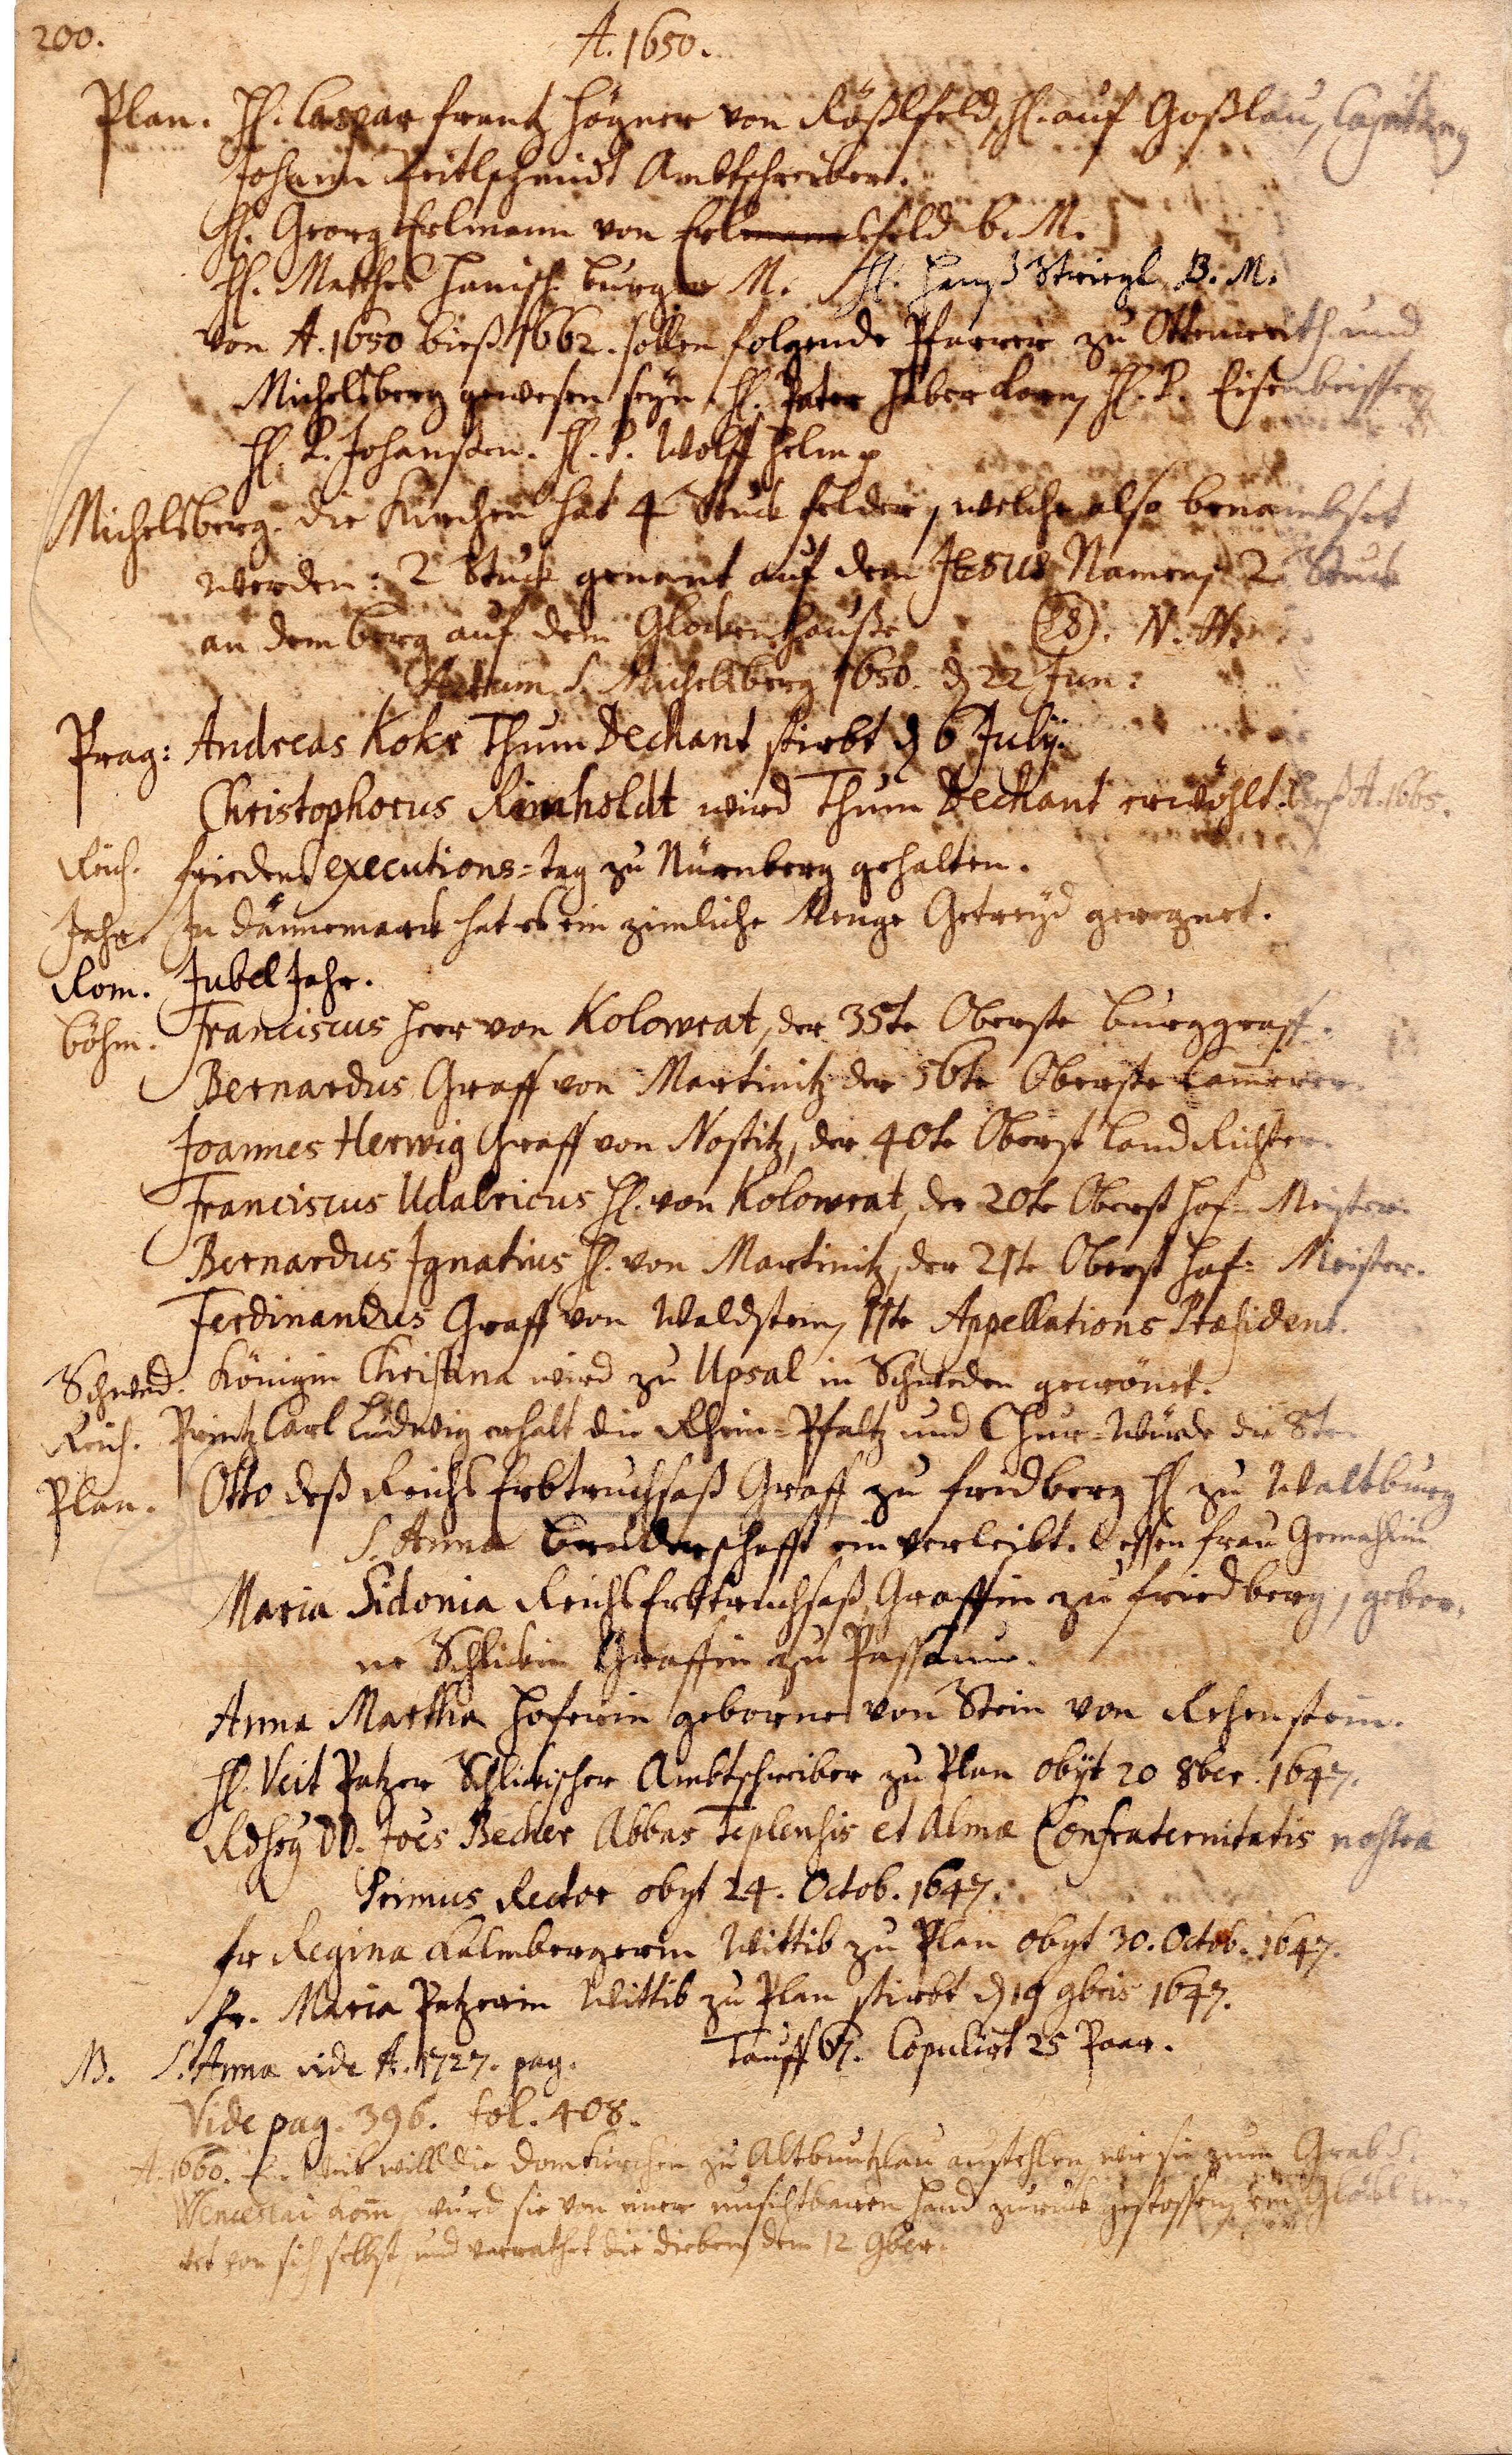 200.
A. 1650.
Plan. H. Caspar Frantz Högner von Rößlfeld, H. auf Goßlau, Capitany
Johann Zeitlschmidt Ambtschreiber.
H. Georg Erlmann von Erlmannsfeld b. M.
H. Mathes Hanisch burger M. H. Hanß Striegl B. M.
Von A. 1650 bieß 1662. sollen folgende Pfarrer zu Ottenreith und
Michelsberg gewesen seyn, H. Pater Haberkorn, H. P. Eisenbeisser,
H. P. Johansen. H. P. Wolff Helm p
Michelsberg. die Kirchen hat 4 Stuck felder, welche also benambset
werden: 2 Stuck genant auf dem JESUS Namen, 2 Stuck
an dem berg auf dem Glockenhauße (28). N. W.
Actum S. Michelsberg 1650. d 22 Jun:
Prag: Andreas Kokr Thum Dechant stirbt d 6 July.
Christophorus Reinholdt wird Thum Dechant erwöhlt. bieß A. 1665.
Reich. friedens executions-tag zu Nürnberg gehalten.
Jahr. In Dännemarck hat es ein zimliche Menge Getreyd geregnet.
Rom. Jubel Jahr.
böhm. Franciscus Herr von Kolowrat, der 35te Oberste burggraff.
Bernardus Graff von Martinitz der 56te Oberste Cammerer.
Joannes Herwig Graff von Nostitz, der 40te Oberst Land Richter.
Franciscus Udalricus H. von Kolowrat, der 20te Oberst Hof-Meister.
Bernardus Ignatius H. von Martinitz, der 21te Oberst Hof-Meister.
Ferdinandus Graff von Waldstein, 11te Appellations Præsident.
Schwed. Königin Christina wird zu Upsal in Schweden gecrönet.
Reich. Printz Carl Ludwig erhalt die Rhein-Pfaltz und Chur-Würde die 8te
Plan. Otto deß Reichs Erbtruchsaß Graff zu Fridberg H zu Waltburg
S. Anna Bruderschafft ein verleibt. dessen frau Gemahlin
Maria Sidonia Reichs Erbtruchsaß, Graffin zu Friedberg, gebor,
ne Schlickin Graffin zu Passaun.
Anna Martha Hoferin geborne von Stein von Rehenstein.
H. Veit Patzer Schlickischer Ambtschreiber zu Plan obyt 20 8ber. 1647.
DD. Joes Becher Abbas Teplensis et Almæ Confraternitatis nostra
Primus Rector obyt 24. Octob. 1647.
fr Regina Kalmbergerin Wittib zu Plan obyt 30. Octob. 1647.
Fr. Maria Patzerin Wittib zu Plan stirbt d 19 9bris 1647.
Tauff 67. Copulirt 25 Paar.
NB. S. Anna vide A. 1727. pag.
Vide pag. 396. fol. 408.
A. 1660. Ein Weib will die Domkirchen zu Altbuntzlau austehlen, wie sie zum Grab S.
Wenceslai kom, wurd sie von einer unsichtbaren Hand zuruck gestossen, ein Glökl leu-
tet von sich selbst, und verrathet die dieben, dem 12 9ber.